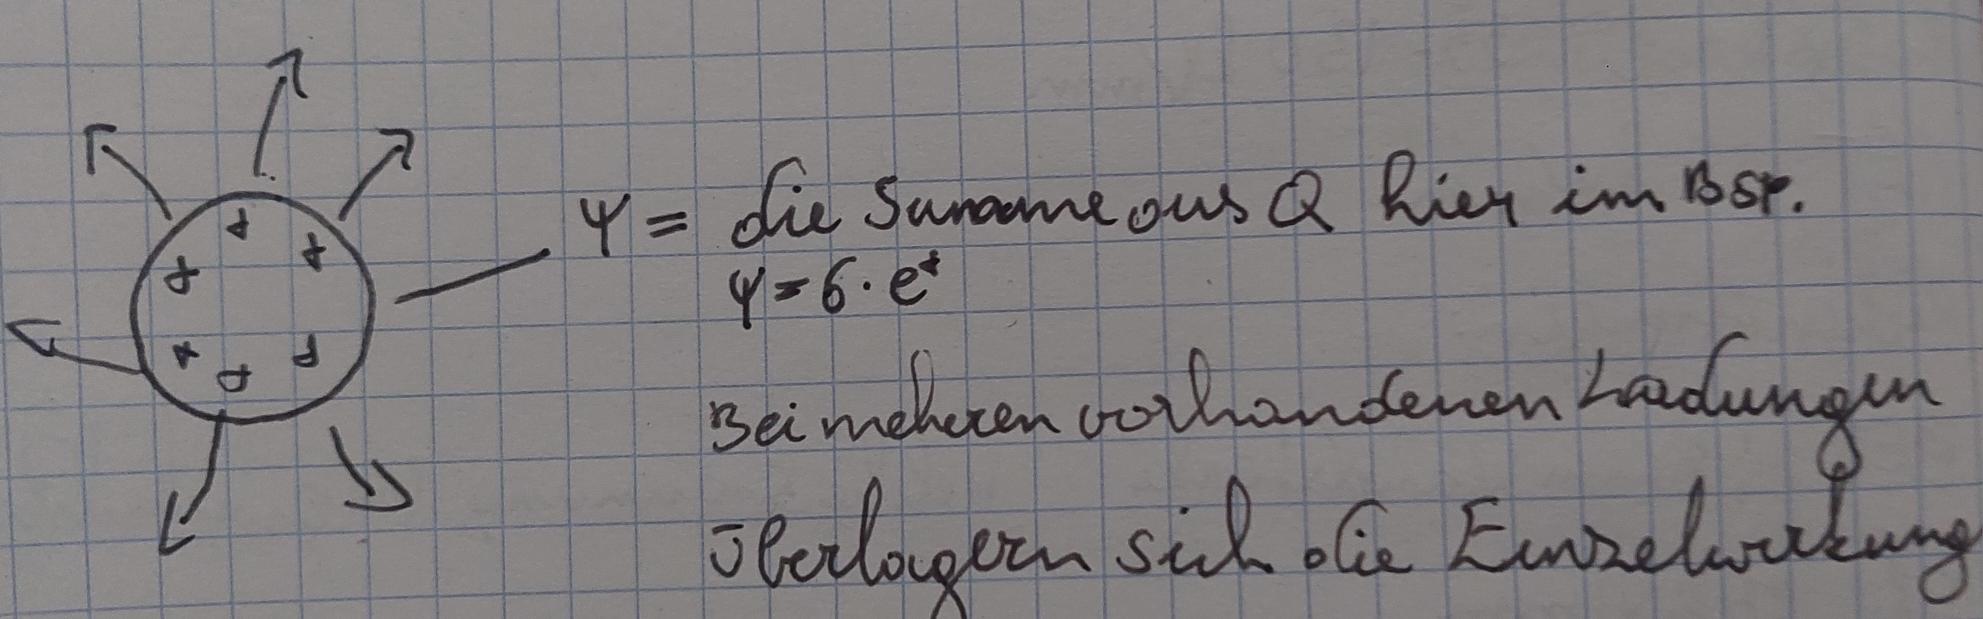 Ψ = die Summe aus Q hier im Bsp.
Ψ = 6 · e⁺
Bei meheren vorhandenen Ladungen
überlagern sich die Einzelwirkung
+ + + + + +